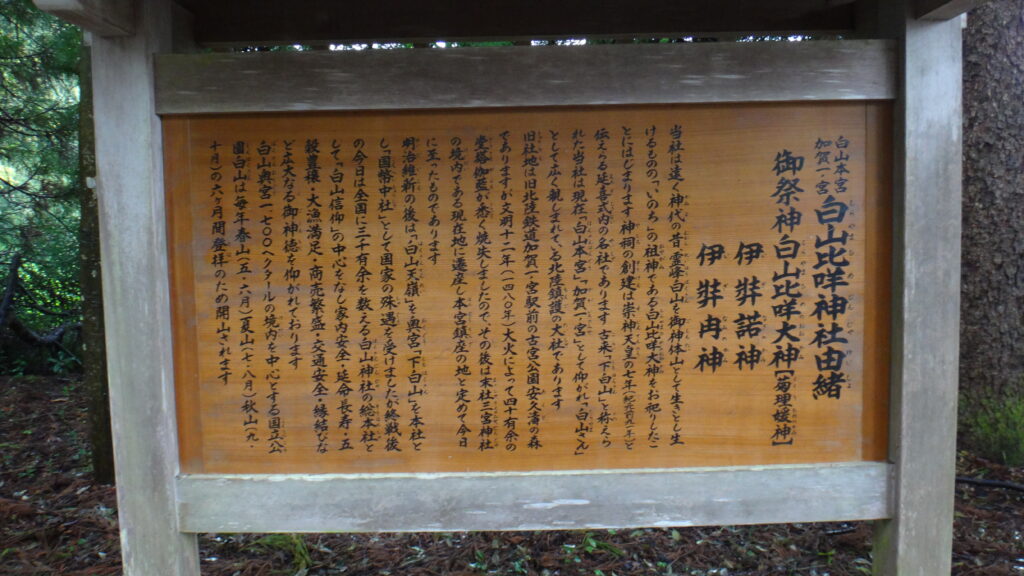 白山本宮
加賀一宮
白山比咩神社由緒
御祭神 白山比咩大神【菊理媛神】
伊弉諾神
伊弉冉神
当社は遠く神代の昔、霊峰白山を御神体山として生きとし生
けるもの「いのち」の祖神である白山比咩大神をお祀りしたこ
とにはじまります 神祠の創建は崇神天皇の七年
伝えらる延喜式内の名社であります 古来「下白山」と称えら
れた当社は現在「白山本宮・加賀一宮」として仰がれ、「白山さん」
として広く親しまれている北陸鎮護の大社であります
旧社地は旧北陸鉄道加賀一宮駅前の古宮公園 安久濤の森
でありますが文明十二年(一四八〇年)大火によって四十有余の
堂塔伽藍が悉く焼失しましたので その後は末社三宮神社
の境内である現在地に遷座し本宮鎮座の地と定めて今日
に至ったものであります
明治維新の後は、「白山天嶺」を奥宮「下白山」を本社と
し、「国幣中社」として国家の殊遇を受けましたが終戦後
の今日は全国に三千有余を数える白山神社の総本社と
して、「白山信仰」の中心をなし家内安全・延命長寿・五
穀豊穣・大漁満足・商売繁盛・交通安全・縁結びな
ど広大なる御神徳を仰がれております
白山奥宮一七〇〇ヘクタールの境内を中心とする国立公
園白山は毎年春山(五・六月)夏山(七・八月)秋山(九・
十月)の六ヶ月間登拝のため開山されます